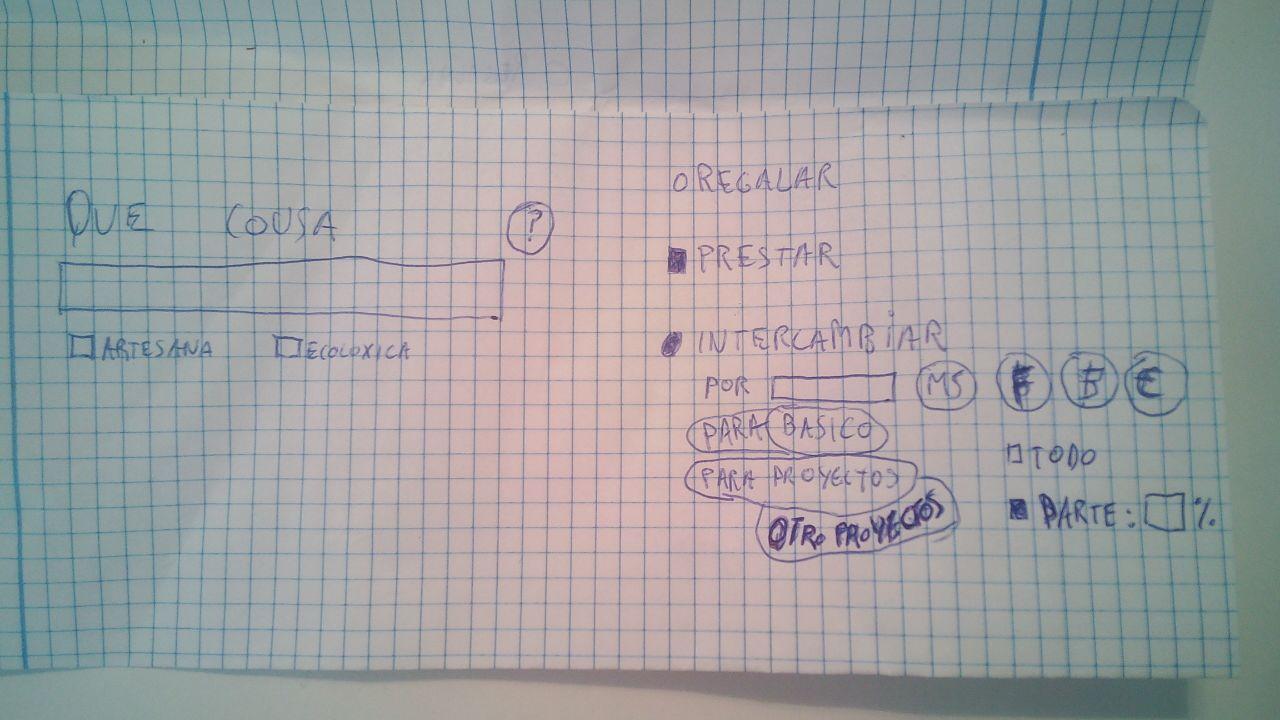 QUE COUSA ?
ARTESANA ECOLOXICA
REGALAR
PRESTAR
INTERCAMBIAR
POR MS € 
PARA BASICO
PARA PROYECTOS
OTRO PROYECTOS
TODO
PARTE: %